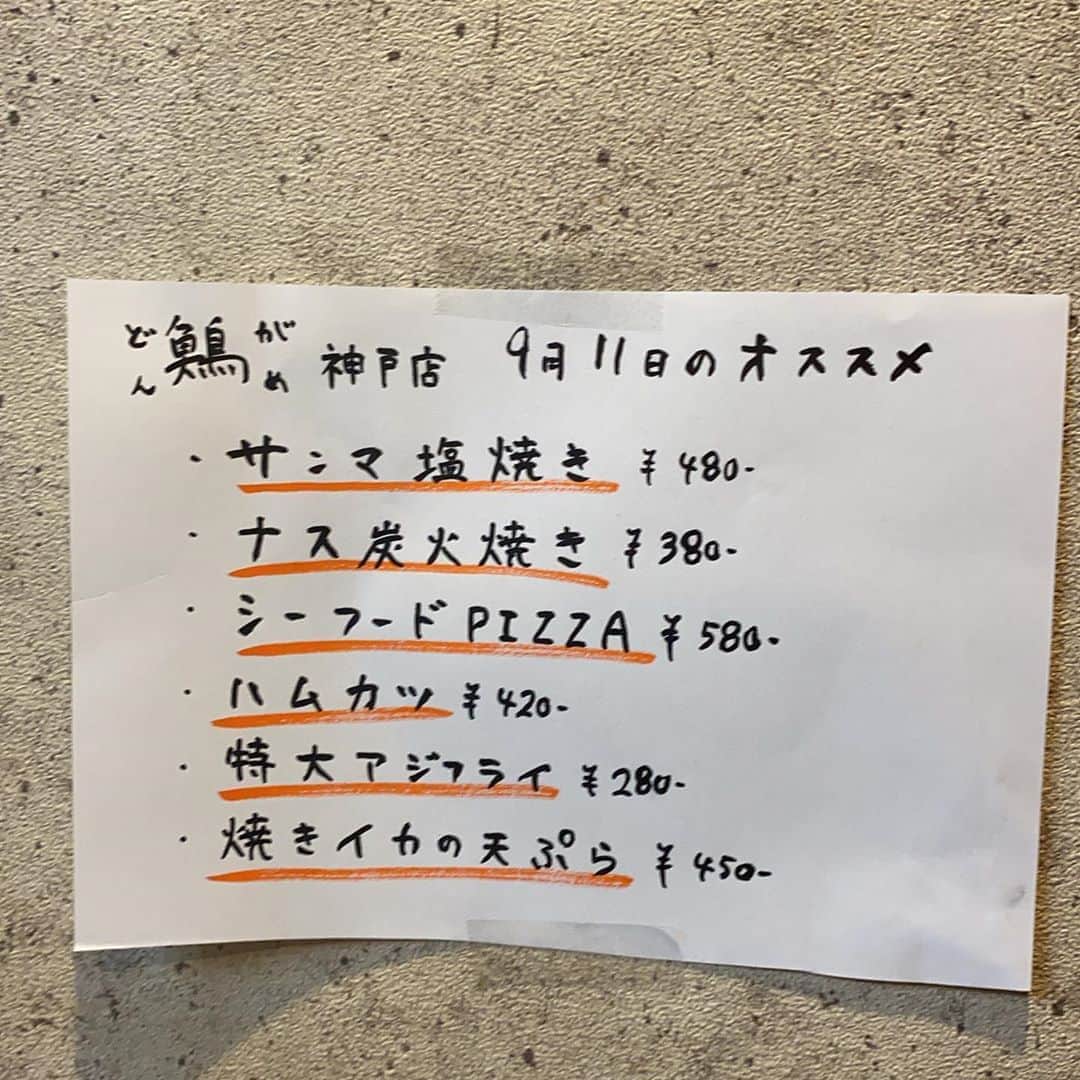 どん鷠がめ 神戸店 9月11日のオススメ
・サンマ塩焼き ¥480-
・ナス炭火焼き ¥380-
・シーフードPIZZA ¥580-
・ハムカツ ¥420-
・特大アジフライ ¥280-
・焼きイカの天ぷら ¥450-